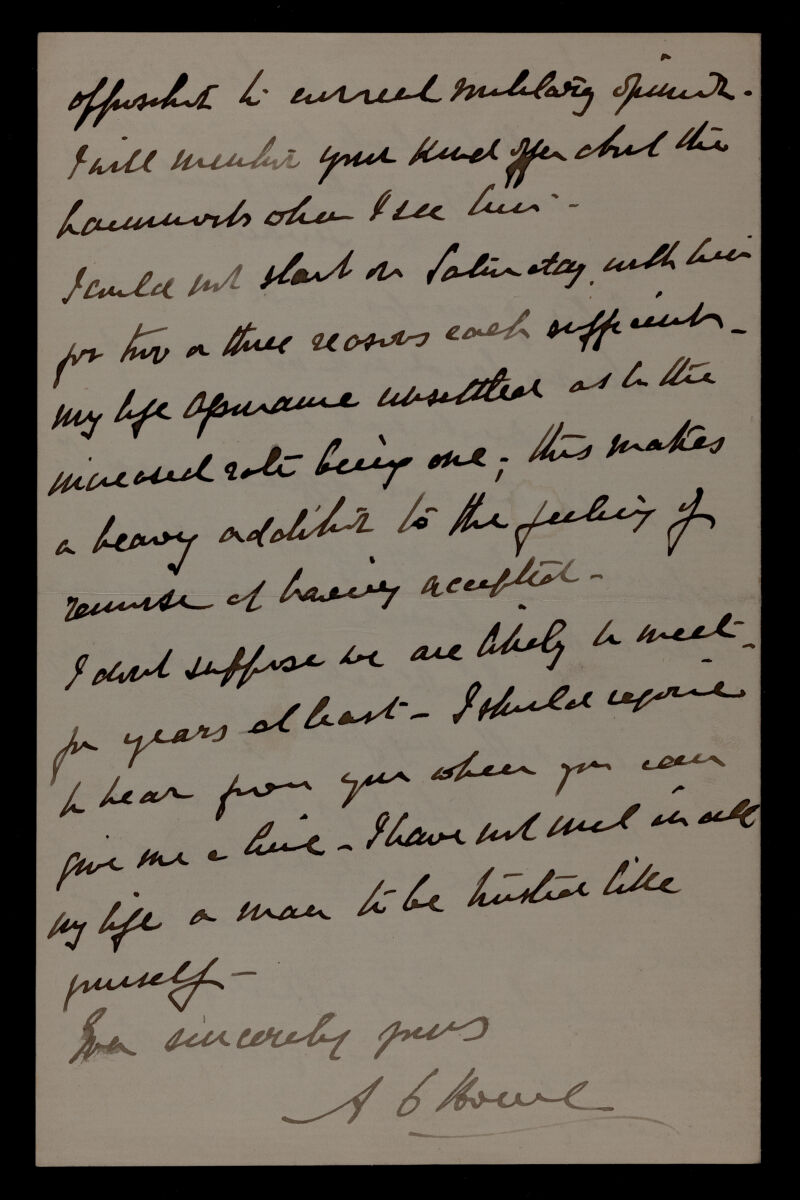 opposition to current military opinion -
I will mention your kind offer about the
hammocks when I see him -
I could not start on Saturday with him
for two or three reasons each sufficient -
my life assurance unsettled as to the
increased rate being one; this makes
a heavy addition to the feeling of
remorse at having accepted -
I dont suppose we are likely to meet -
for years at least - I should rejoice
to hear from you when you can
give me a line - I have not met in all
my life a man to be trusted like
yourself -
Ever sincerely yours
A